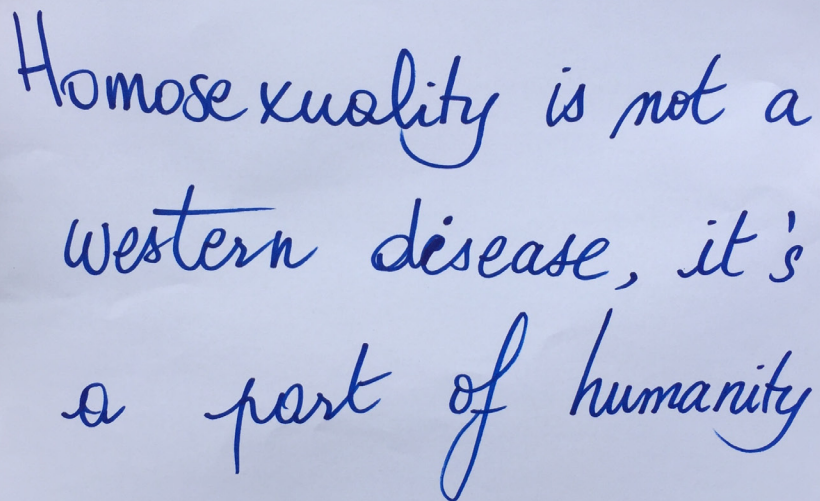 Homosexuality is not a
western disease, it's
a part of humanity